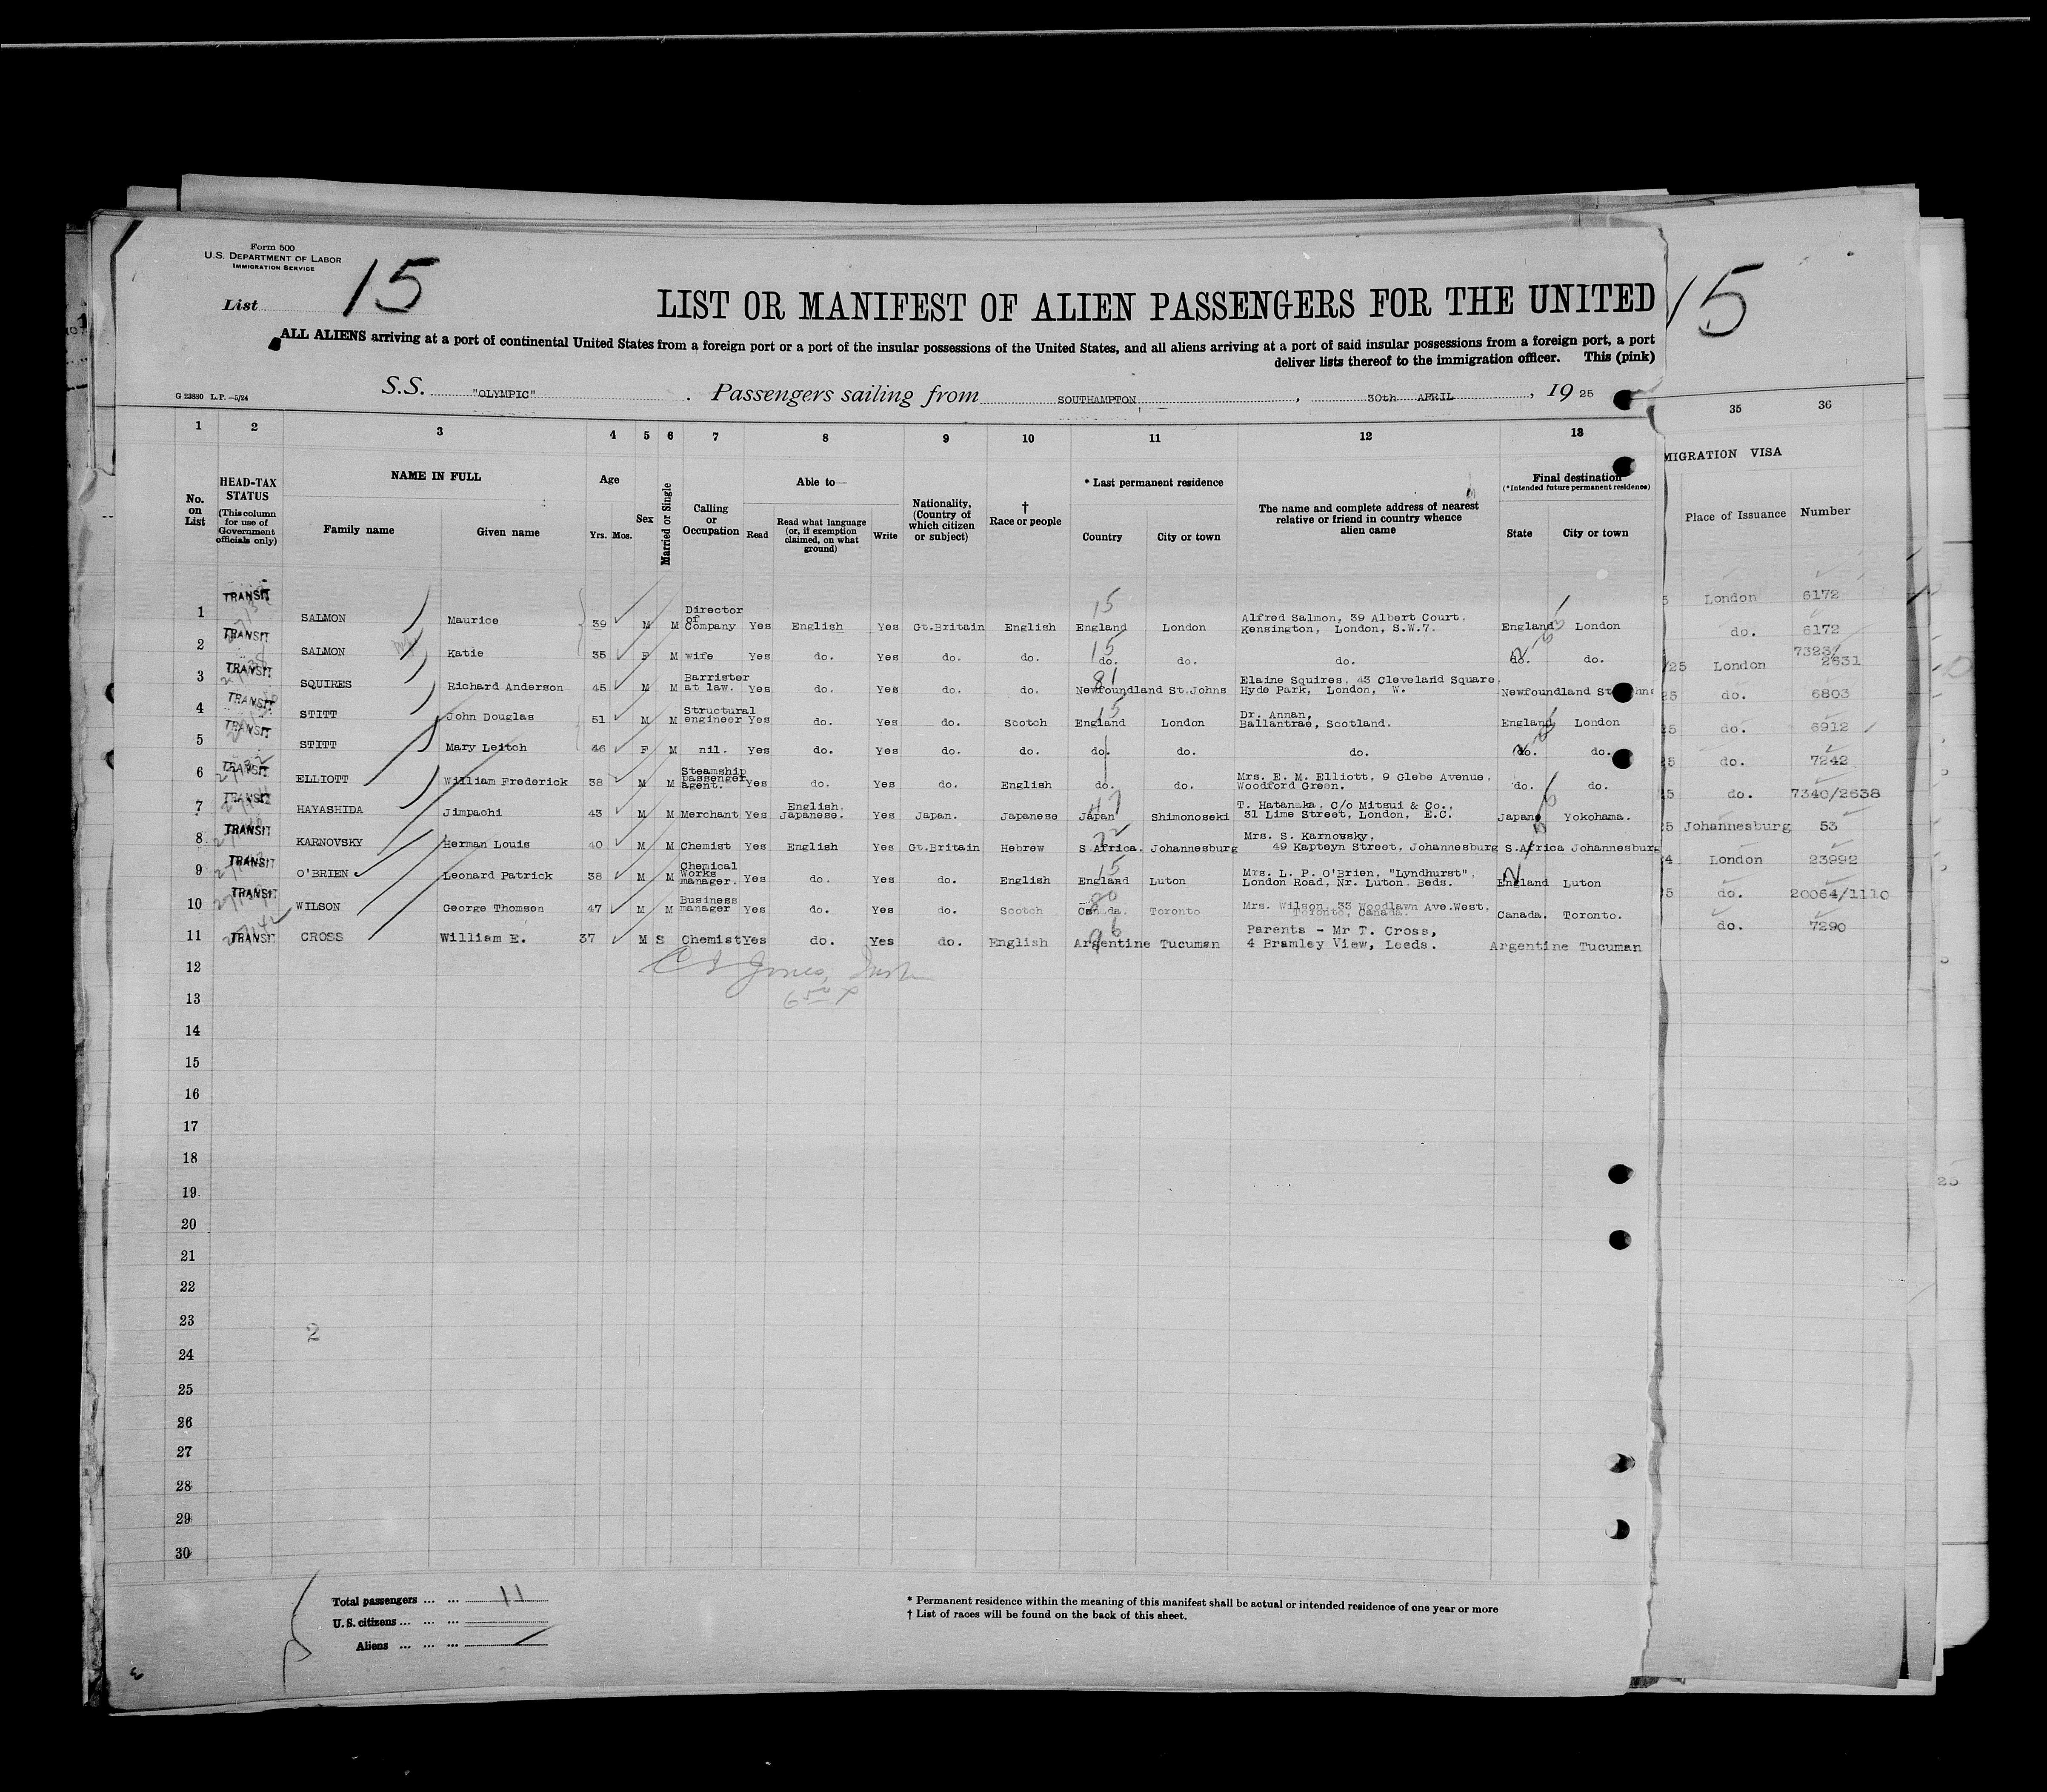 Form 500
U.S. DEPARTMENT OF LABOR
IMMIGRATION SERVICE
List 15
LIST OR MANIFEST OF ALIEN PASSENGERS FOR THE UNITED
15
ALL ALIENS arriving at a port of continental United States from a foreign port or a port of the insular possessions of the United States, and all aliens arriving at a port of said insular possessions from a foreign port, a port
deliver lists thereof to the immigration officer. This (pink)
G 23880 L.P.—5/24
S.S. "OLYMPIC" . Passengers sailing from SOUTHAMPTON , 30th APRIL , 19 25
1 2 3 4 5 6 7 8 9 10 11 12 13 35 36
No. on List
HEAD-TAX STATUS (This column for use of Government officials only)
NAME IN FULL
Family name Given name
Age
Yrs. Mos.
Sex
Married or Single
Calling or Occupation
Able to—
Read
Read what language (or, if exemption claimed, on what ground)
Write
Nationality, (Country of which citizen or subject)
† Race or people
* Last permanent residence
Country City or town
The name and complete address of nearest relative or friend in country whence alien came
Final destination
(*Intended future permanent residence)
State City or town
MIGRATION VISA
Place of Issuance Number
1 TRANSIT SALMON Maurice 39 M M Director of Company Yes English Yes Gt.Britain English 15 England London Alfred Salmon, 39 Albert Court, Kensington, London, S.W.7. England London 5 London 6172
2 TRANSIT SALMON Katie 35 F M wife Yes do. Yes do. do. 15 do. do. do. do. do. do. 6172
3 TRANSIT SQUIRES Richard Anderson 45 M M Barrister at law. Yes do. Yes do. do. 81 Newfoundland St.Johns Elaine Squires, 43 Cleveland Square, Hyde Park, London, W. Newfoundland /25 London 7323/2631
4 TRANSIT STITT John Douglas 51 M M Structural engineer Yes do. Yes do. Scotch 15 England London Dr. Annan, Ballantrae, Scotland. England London 25 do. 6803
5 TRANSIT STITT Mary Leitch 46 F M nil. Yes do. Yes do. do. do. do. do. do. do. 25 do. 6912
6 TRANSIT ELLIOTT William Frederick 38 M M Steamship passenger agent. Yes do. Yes do. English do. do. Mrs. E. M. Elliott, 9 Glebe Avenue, Woodford Green. do. do. 25 do. 7242
7 TRANSIT HAYASHIDA Jimpachi 43 M M Merchant Yes English, Japanese. Yes Japan. Japanese 47 Japan Shimonoseki T. Hatanaka, C/o Mitsui & Co., 31 Lime Street, London, E.C. Japan Yokohama. 25 do. 7340/2638
8 TRANSIT KARNOVSKY Herman Louis 40 M M Chemist Yes English Yes Gt.Britain Hebrew 22 S.Africa. Johannesburg Mrs. S. Karnowsky, 49 Kapteyn Street, Johannesburg S.Africa Johannesburg 25 Johannesburg 53
9 TRANSIT O'BRIEN Leonard Patrick 38 M M Chemical Works manager. Yes do. Yes do. English 15 England Luton Mrs. L. P. O'Brien, "Lyndhurst", London Road, Nr. Luton. Beds. England Luton 24 London 23992
10 TRANSIT WILSON George Thomson 47 M M Business manager Yes do. Yes do. Scotch 80 Canada. Toronto Mrs. Wilson, 33 Woodlawn Ave.West, Toronto, Canada. Canada. Toronto. 25 do. 20064/1110
11 TRANSIT CROSS William E. 37 M S Chemist Yes do. Yes do. English 96 Argentine Tucuman Parents - Mr T. Cross, 4 Bramley View, Leeds. Argentine Tucuman do. 7290
12
13
14
15
16
17
18
19
20
21
22
23
24
25
26
27
28
29
30
2
Total passengers ... ... 11
U.S. citizens ... ... ...
Aliens ... ... ...
* Permanent residence within the meaning of this manifest shall be actual or intended residence of one year or more
† List of races will be found on the back of this sheet.